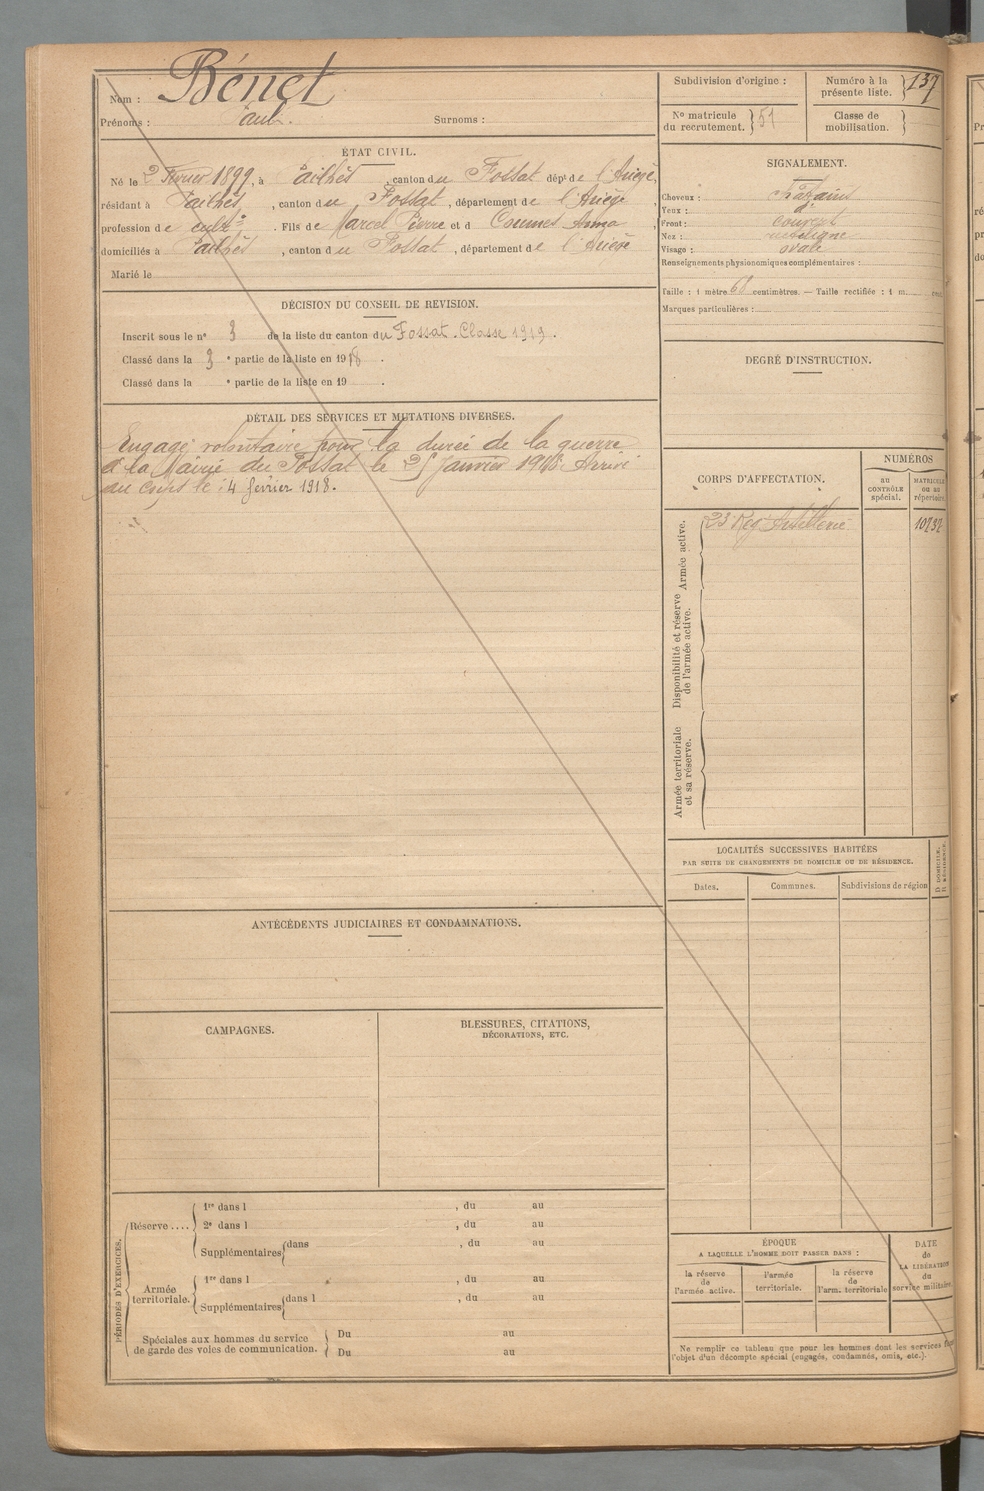 Nom : Bénet
Prénoms : Paul. Surnoms :
ÉTAT CIVIL.
Né le 2 Février 1899, à Pailhès, canton du Fossat dépt de l'Ariège,
résidant à Pailhès, canton du Fossat, département de l'Ariège,
profession de cultr. Fils de Marcel Pierre et d Coumes Anna,
domiciliés à Pailhès, canton du Fossat, département de l'Ariège
Marié le
DÉCISION DU CONSEIL DE REVISION.
Inscrit sous le n° 3 de la liste du canton du Fossat. Classe 1919.
Classé dans la 3e partie de la liste en 1918.
Classé dans la e partie de la liste en 19 .
DÉTAIL DES SERVICES ET MUTATIONS DIVERSES.
Engagé volontaire pour la durée de la guerre
à la Mairie du Fossat le 25 Janvier 1918. Arrivé
au corps le 4 février 1918.
ANTÉCÉDENTS JUDICIAIRES ET CONDAMNATIONS.
CAMPAGNES.
BLESSURES, CITATIONS,
DÉCORATIONS, ETC.
PÉRIODES D'EXERCICES.
Réserve ....
1re dans l , du au
2e dans l , du au
Supplémentaires dans , du au
Armée
territoriale.
1re dans l , du au
Supplémentaires dans l , du au
Spéciales aux hommes du service
de garde des voies de communication.
Du au
Du au
Subdivision d'origine :
Numéro à la
présente liste. 137
N° matricule
du recrutement. 51
Classe de
mobilisation.
SIGNALEMENT.
Cheveux : châtains
Yeux : d°
Front : couvert
Nez : rectiligne
Visage : ovale
Renseignements physionomiques complémentaires :
Taille : 1 mètre 68 centimètres. — Taille rectifiée : 1 m. cent.
Marques particulières :
DEGRÉ D'INSTRUCTION.
CORPS D'AFFECTATION.
NUMÉROS
au
CONTRÔLE
spécial.
MATRICULE
ou au
répertoire.
Armée active.
23e Rég. Artillerie
Disponibilité et réserve
de l'armée active.
Armée territoriale
et sa réserve.
LOCALITÉS SUCCESSIVES HABITÉES
PAR SUITE DE CHANGEMENTS DE DOMICILE OU DE RÉSIDENCE.
Dates.
Communes.
Subdivisions de région
D. DOMICILE.
R. RÉSIDENCE.
ÉPOQUE
A LAQUELLE L'HOMME DOIT PASSER DANS :
la réserve
de
l'armée active.
l'armée
territoriale.
la réserve
de
l'arm. territoriale
DATE
de
LA LIBÉRATION
du
service militaire.
Ne remplir ce tableau que pour les hommes dont les services font
l'objet d'un décompte spécial (engagés, condamnés, omis, etc.).